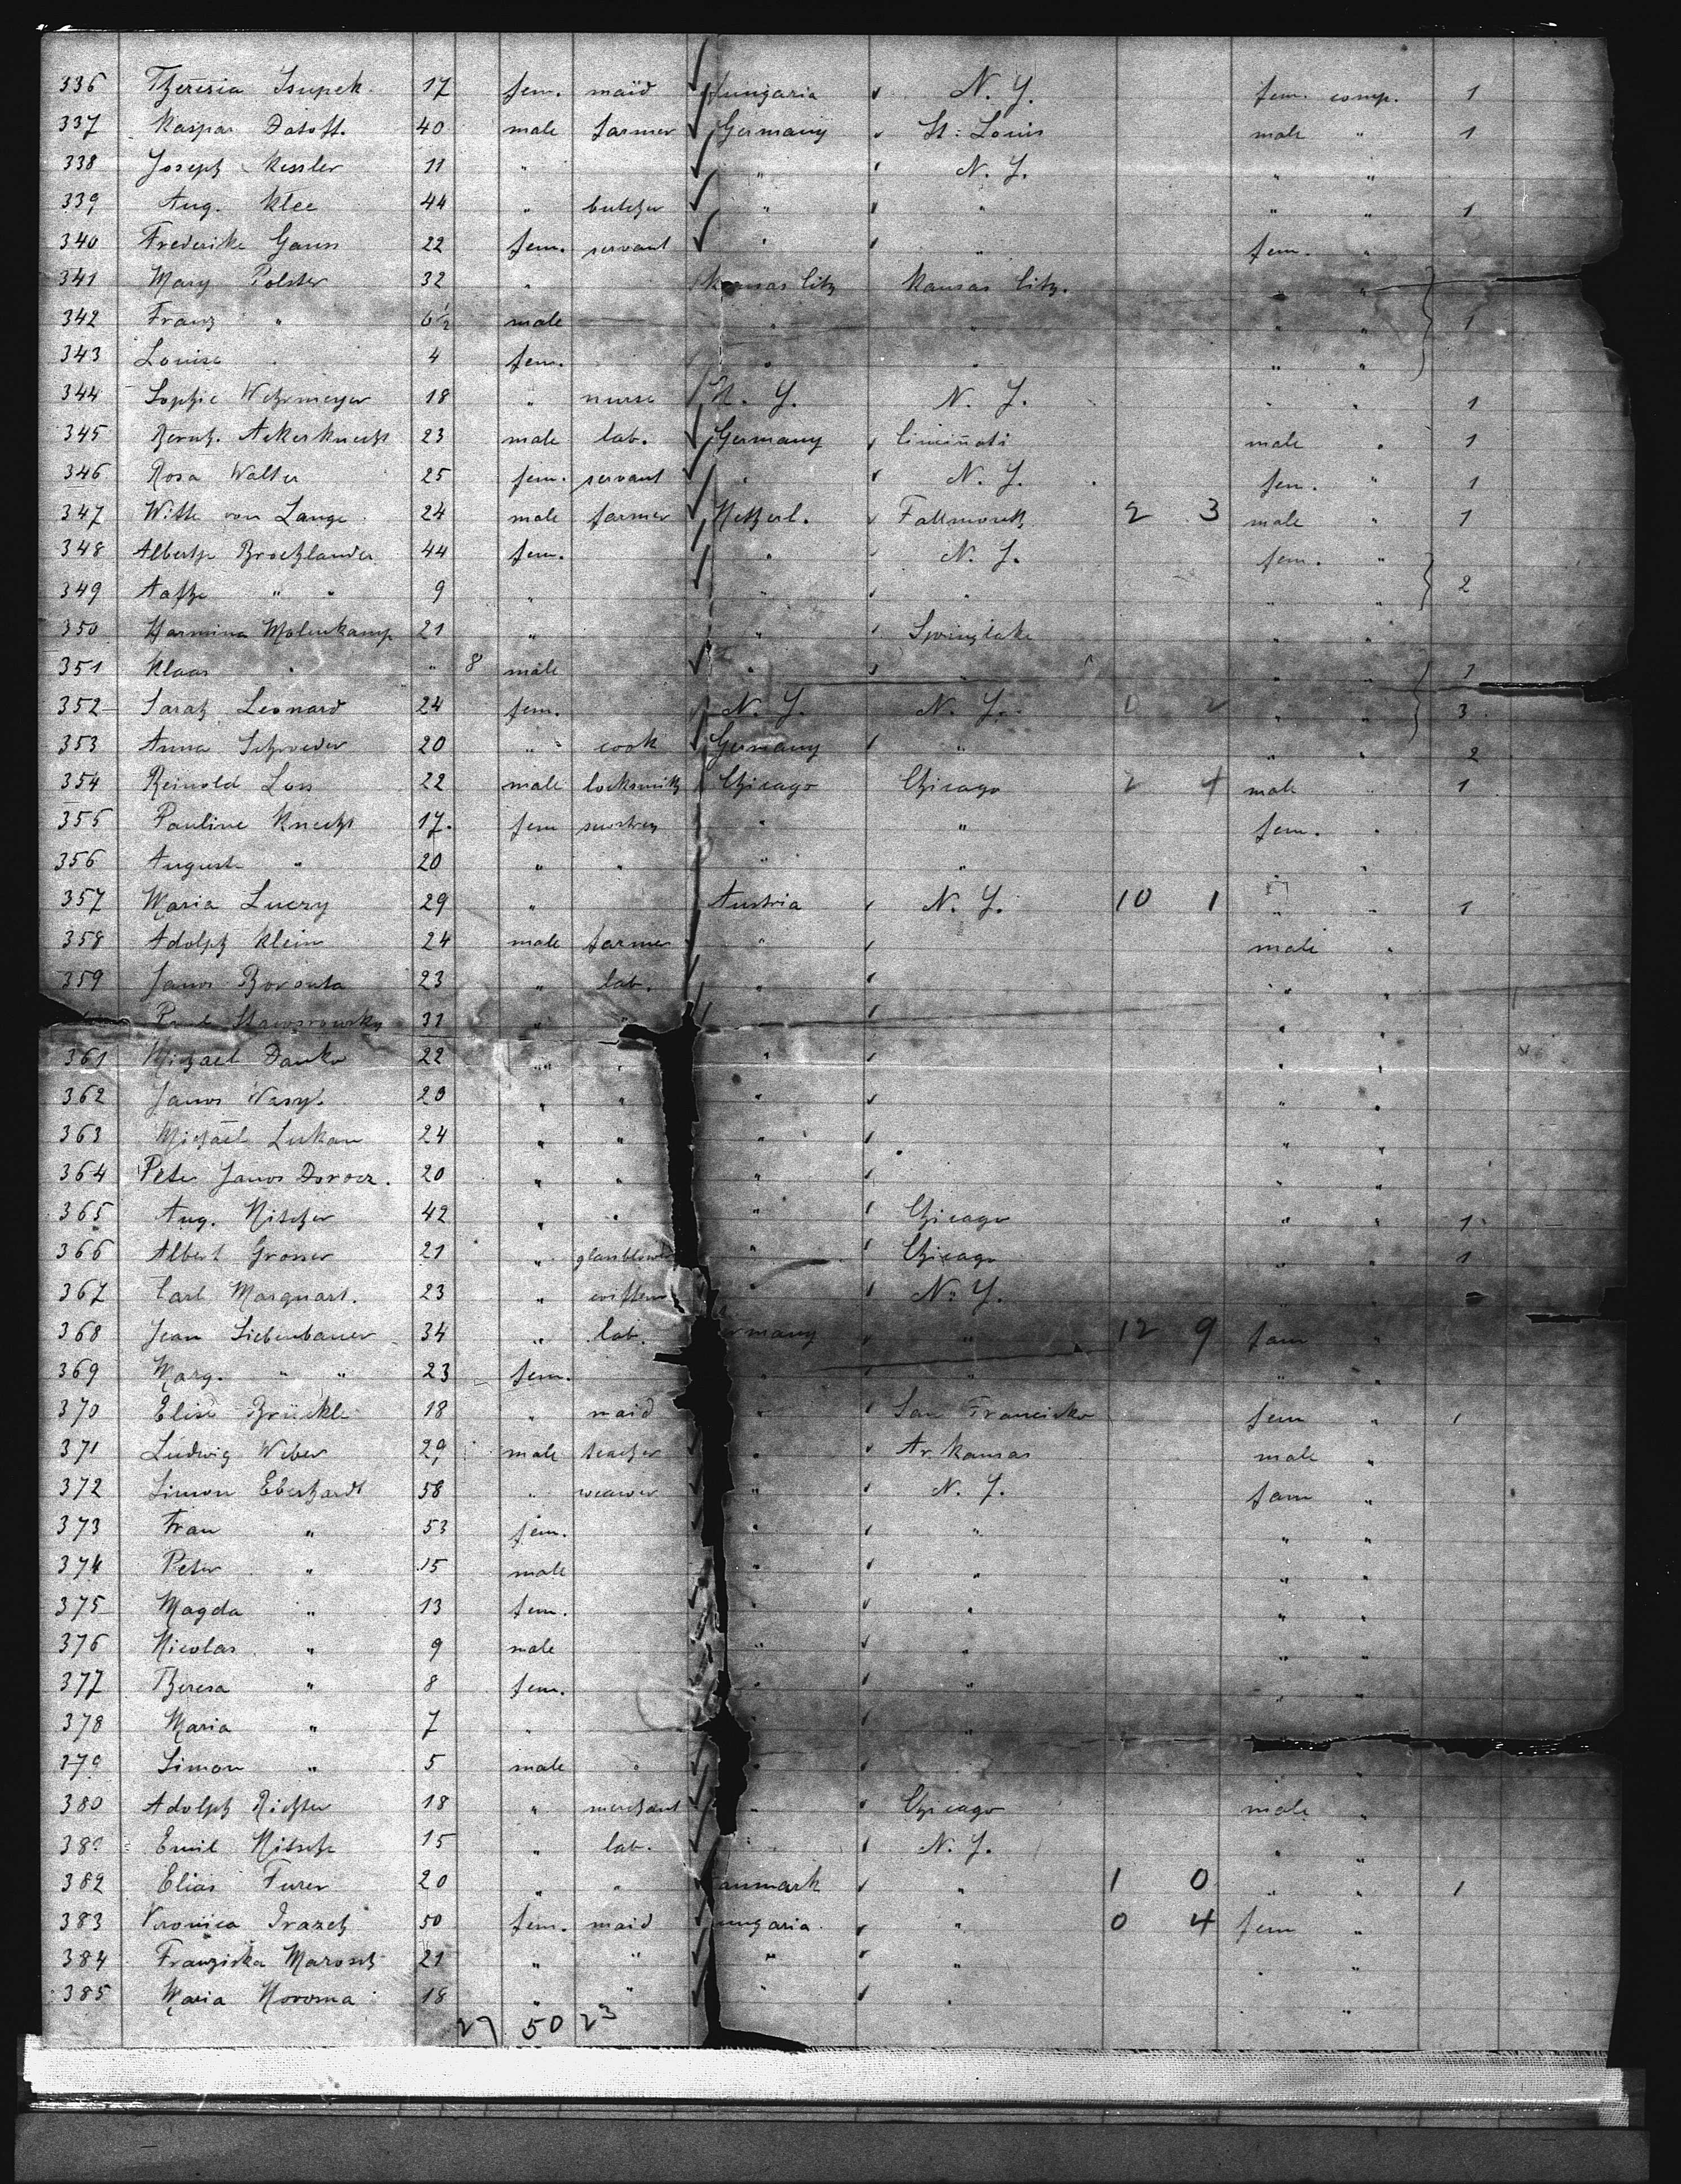 336 Theresia Isupek 17 fem. maid Hungaria N. Y. fem. comp. 1
337 Kaspar Datoff. 40 male farmer Germany St: Louis male " 1
338 Joseph Kessler 11 " " N. Y. " "
339 Aug. Klee 44 " butcher " " " " 1
340 Frederike Gauss 22 fem. servant " " fem. "
341 Mary Polster 32 " Kansas City Kansas City. " "
342 Franz " 6½ male " " " " 1
343 Louise " 4 fem. " " " "
344 Sophie Wehrmeyer 18 " nurse N. Y. N. Y. " " 1
345 Bernh. Ackerknecht 23 male lab. Germany Cincinnati male " 1
346 Rosa Walter 25 fem. servant " N. Y. fem. " 1
347 Witte von Lange 24 male farmer Netherl. 2 3 male " 1
348 44 fem. " N. Y. fem. "
349 Aafke " " 9 " " " " " 2
350 Harmina Molenkamp 21 " " Springlake " "
351 Klaas " " 8 male " " " " 1
352 Sarah Leonard 24 fem. N. Y. N. Y. 0 2 " " 3
353 Anna Schroeder 20 " cook Germany " " " 2
354 Reinold Loss 22 male locksmith Chicago Chicago 2 4 male " 1
355 Pauline Knecht 17. fem " " fem. "
356 Auguste " 20 " " " " " "
357 Maria Luczy 29 " Austria N. Y. 10 1 " " 1
358 Adolph Klein 24 male farmer " male "
359 Janos Boronta 23 " lab. " " "
31 " " " "
361 Michael Danko 22 " " " " "
362 Janos Wasyl. 20 " " " " "
363 Michael Lukan 24 " " " " "
364 Peter Janos Dorocz. 20 " " " " "
365 Aug. Nitscher 42 " " " Chicago " " 1
366 Albert Grosser 21 " glassblower " Chicago " " 1
367 Carl Marquart. 23 " " N. Y.
368 Jean Siebenbauer 34 " lab. ermany " 12 9 fam "
369 Marg. " " 23 fem. " " " "
370 Elise Brückle 18 " maid " San Francisko fem " 1
371 Ludwig Weber 29 male teacher " Arkansas male "
372 Simon Eberhardt 58 " weawer " N. Y. fam "
373 Frau " 53 fem. " " " "
374 Peter " 15 male " " " "
375 Magda " 13 fem. " " " "
376 Nicolas " 9 male " " " "
377 Theresa " 8 fem. " " " "
378 Maria " 7 " " "
379 Simon " 5 male " " " "
380 Adolph Richter 18 " merchant " Chicago male "
38 Emil Nitsche 15 " lab. " N. Y. " "
382 Elias Furer 20 " " anmark " 1 0 " " 1
383 Veronica Irazek 50 fem. maid ungaria " 0 4 fem "
384 Franziska Marosch 21 " " " " " "
385 Maria Novosna 18 " " " " " "
27 50 23